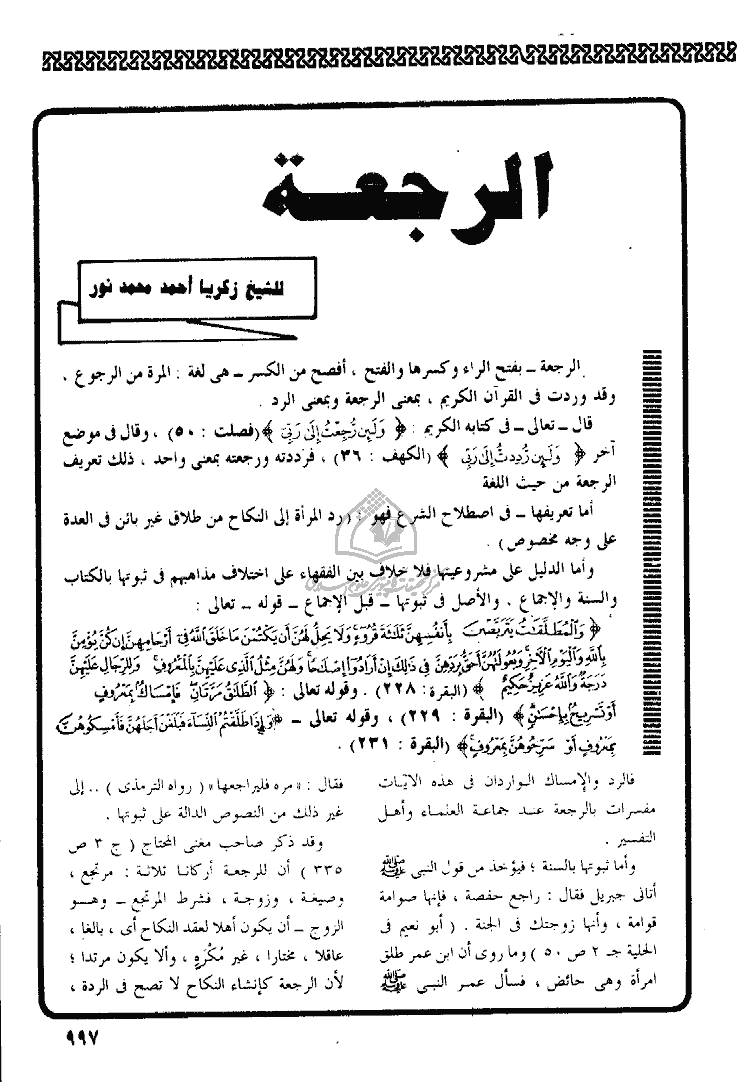 الرجعة
للشيخ زكريا أحمد محمد نور
الرجعة ــ بفتح الراء وكسرها والفتح ، أفصح من الكسر ــ هى لغة : المرة من الرجوع ،
وقد وردت فى القرآن الكريم ، بمعنى الرجعة وبمعنى الرد .
قال ــ تعالى ــ فى كتابه الكريم : ﴿ وَلَئِن رُّجِعْتُ إِلَىٰ رَبِّي ﴾ (فصلت : ٥٠) ، وقال فى موضع
آخر ﴿ وَلَئِن رُّدِدتُّ إِلَىٰ رَبِّي ﴾ (الكهف : ٣٦) ، فرددته ورجعته بمعنى واحد ، ذلك تعريف
الرجعة من حيث اللغة
أما تعريفها ــ فى اصطلاح الشرع فهو : (رد المرأة إلى النكاح من طلاق غير بائن فى العدة
على وجه مخصوص) .
وأما الدليل على مشروعيتها فلا خلاف بين الفقهاء على اختلاف مذاهبهم فى ثبوتها بالكتاب
والسنة والإجماع . والأصل فى ثبوتها ــ قبل الإجماع ــ قوله ــ تعالى :
﴿ وَالْمُطَلَّقَاتُ يَتَرَبَّصْنَ بِأَنفُسِهِنَّ ثَلَاثَةَ قُرُوءٍ وَلَا يَحِلُّ لَهُنَّ أَن يَكْتُمْنَ مَا خَلَقَ اللَّهُ فِي أَرْحَامِهِنَّ إِن كُنَّ يُؤْمِنَّ
بِاللَّهِ وَالْيَوْمِ الْآخِرِ وَبُعُولَتُهُنَّ أَحَقُّ بِرَدِّهِنَّ فِي ذَٰلِكَ إِنْ أَرَادُوا إِصْلَاحًا وَلَهُنَّ مِثْلُ الَّذِي عَلَيْهِنَّ بِالْمَعْرُوفِ وَلِلرِّجَالِ عَلَيْهِنَّ
دَرَجَةٌ وَاللَّهُ عَزِيزٌ حَكِيمٌ ﴾ (البقرة : ٢٢٨) . وقوله تعالى : ﴿ الطَّلَاقُ مَرَّتَانِ فَإِمْسَاكٌ بِمَعْرُوفٍ
أَوْ تَسْرِيحٌ بِإِحْسَانٍ ﴾ (البقرة : ٢٢٩) ، وقوله تعالى ــ ﴿ وَإِذَا طَلَّقْتُمُ النِّسَاءَ فَبَلَغْنَ أَجَلَهُنَّ فَأَمْسِكُوهُنَّ
بِمَعْرُوفٍ أَوْ سَرِّحُوهُنَّ بِمَعْرُوفٍ ﴾ (البقرة : ٢٣١) .
فالرد والإمساك الواردان فى هذه الآيات
مفسرات بالرجعة عند جماعة العلماء وأهل
التفسير .
وأما ثبوتها بالسنة ؛ فيؤخذ من قول النبى ﷺ
أتانى جبريل فقال : راجع حفصة ، فإنها صوامة
قوامة ، وأنها زوجتك فى الجنة . ( أبو نعيم فى
الحلية جـ ٢ ص ٥٠ ) وما روى أن ابن عمر طلق
امرأة وهى حائض ، فسأل عمر النبى ﷺ
فقال : «مره فليراجعها» ( رواه الترمذى ) .. إلى
غير ذلك من النصوص الدالة على ثبوتها .
وقد ذكر صاحب مغنى المحتاج ( ج ٣ ص
٣٣٥ ) أن للرجعة أركانا ثلاثة : مرتجع ،
وصيغة ، وزوجة ، فشرط المرتجع ــ وهو
الزوج ــ أن يكون أهلا لعقد النكاح أى ، بالغا ،
عاقلا ، مختارا ، غير مُكْرَهٍ ، وألا يكون مرتدا ؛
لأن الرجعة كإنشاء النكاح لا تصح فى الردة ،
٩٩٧